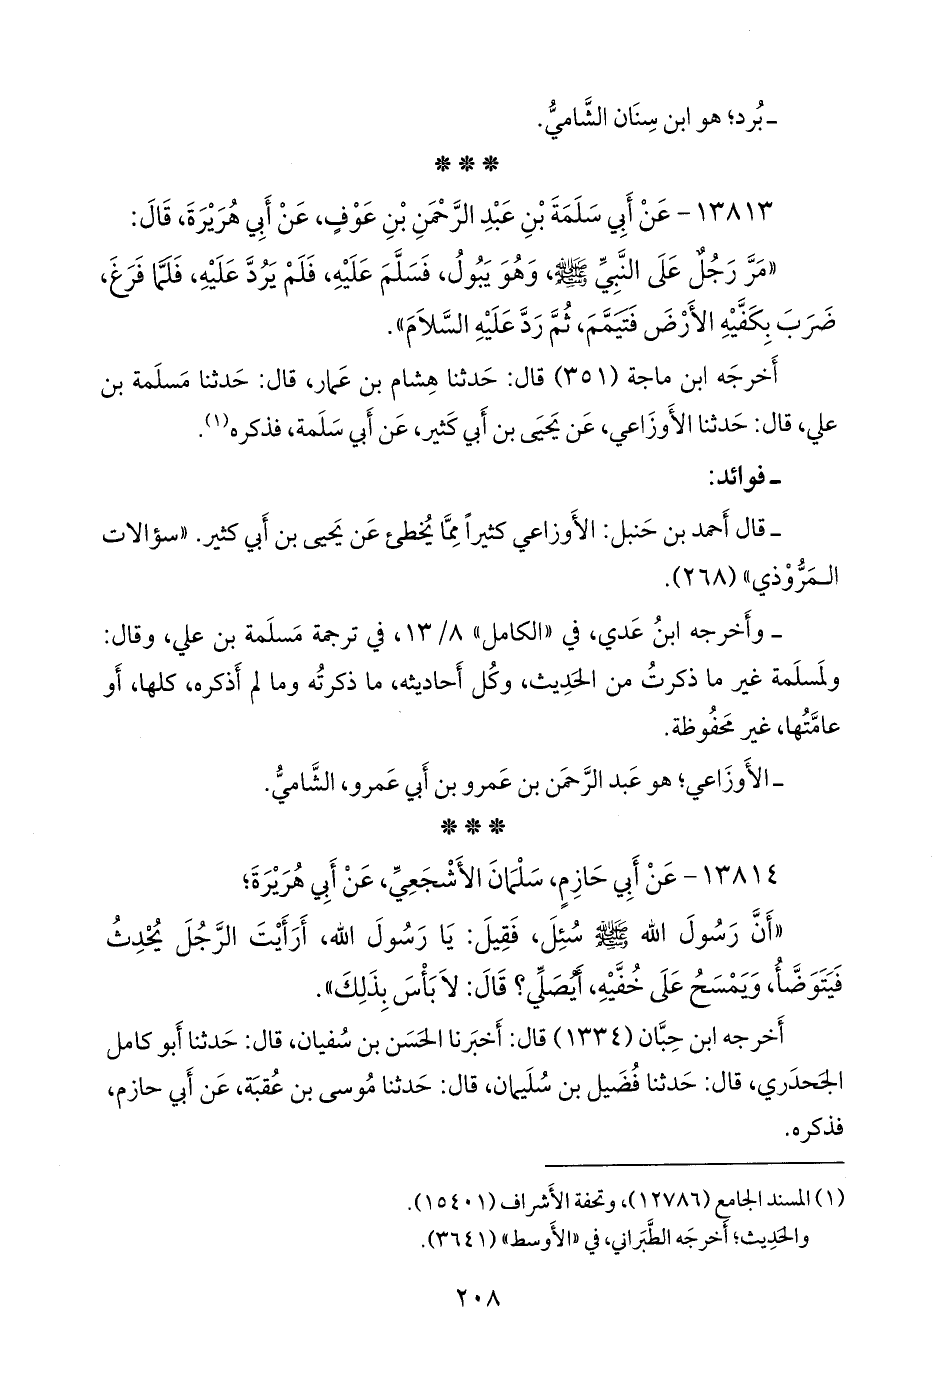 ـ بُرد؛ هو ابن سِنَان الشَّاميُّ.
* * *
١٣٨١٣ - عَنْ أَبِي سَلَمَةَ بْنِ عَبْدِ الرَّحْمَنِ بْنِ عَوْفٍ، عَنْ أَبِي هُرَيْرَةَ، قَالَ:
«مَرَّ رَجُلٌ عَلَى النَّبِيِّ ﷺ، وَهُوَ يَبُولُ، فَسَلَّمَ عَلَيْهِ، فَلَمْ يَرُدَّ عَلَيْهِ، فَلَمَّا فَرَغَ،
ضَرَبَ بِكَفَّيْهِ الأَرْضَ فَتَيَمَّمَ، ثُمَّ رَدَّ عَلَيْهِ السَّلاَمَ».
أَخرجَه ابن ماجة (٣٥١) قال: حَدثنا هِشام بن عَمار، قال: حَدثنا مَسلَمة بن
علي، قال: حَدثنا الأَوزَاعي، عَن يَحيَى بن أَبي كَثير، عَن أَبي سَلَمة، فذكره(١).
ـ فوائد:
ـ قال أَحمد بن حَنبل: الأَوزاعي كثيراً مِمَّا يُخطئ عَن يَحيى بن أَبي كثير. «سؤالات
المَرُّوْذي» (٢٦٨).
ـ وأَخرجه ابنُ عَدي، في «الكامل» ٨/ ١٣، في ترجمة مَسلَمة بن علي، وقال:
ولمَسلَمة غير ما ذكرتُ من الحَدِيث، وكُل أَحاديثه، ما ذكرتُه وما لم أَذكره، كلها، أَو
عامَّتُها، غير محَفُوظة.
ـ الأَوزَاعي؛ هو عَبد الرَّحمَن بن عَمرو بن أَبي عَمرو، الشَّاميُّ.
* * *
١٣٨١٤ - عَنْ أَبِي حَازِمٍ، سَلْمَانَ الأَشْجَعِيِّ، عَنْ أَبِي هُرَيْرَةَ؛
«أَنَّ رَسُولَ الله ﷺ سُئِلَ، فَقِيلَ: يَا رَسُولَ الله، أَرَأَيْتَ الرَّجُلَ يُحْدِثُ
فَيَتَوَضَّأُ، وَيَمْسَحُ عَلَى خُفَّيْهِ، أَيُصَلِّي؟ قَالَ: لاَ بَأْسَ بِذَلِكَ».
أَخرجه ابن حِبَّان (١٣٣٤) قال: أَخبَرنا الحَسَن بن سُفيان، قال: حَدثنا أَبو كامل
الجَحدَري، قال: حَدثنا فُضَيل بن سُلَيمان، قال: حَدثنا مُوسى بن عُقبَة، عَن أَبي حازم،
فذكره.
(١) المسند الجامع (١٢٧٨٦)، وتحفة الأَشراف (١٥٤٠١).
والحَدِيث؛ أَخرجَه الطَّبَراني، في «الأَوسط» (٣٦٤١).
٢٠٨